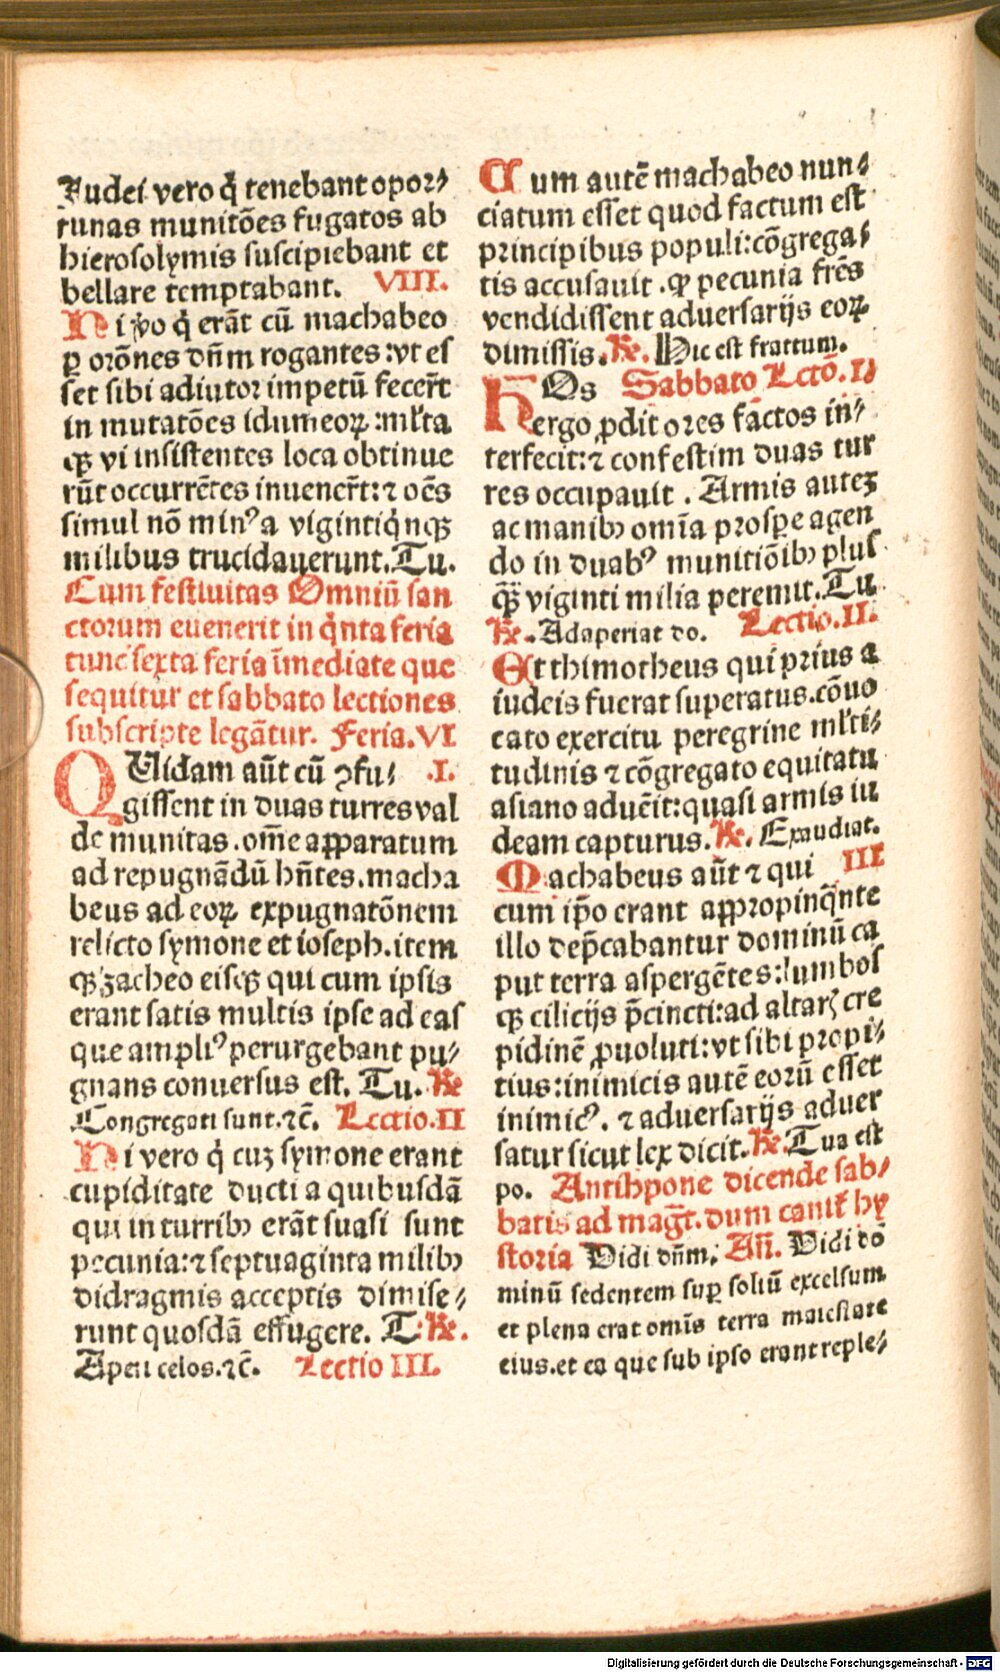 Judei vero q̄ tenebant opor⸗
tunas munitōes fugatos ab
hierosolymis suscipiebant et
bellare temptabant. VIII.
Ni ṽo q̄ erāt cū machabeo
ꝑ orōnes dn̄m rogantes:vt es
set sibi adiutor impetū fecer̄t
in mutatōes idumeoꝝ:ml̄ta
qꝫ vi insistentes loca obtinue
rūt occurrētes inuener̄t:⁊ oēs
simul nō minꝰ a vigintiq̄nqꝫ
milibus trucidauerunt.Tu.
Cum festiuitas Omniū san
ctorum euenerit in q̄nta feria
tunc sexta feria īmediate que
sequitur et sabbato lectiones
subscripte legātur. Feria.VI
QUidam aūt cū ꝯfu⸗ .I.
gissent in duas turres val
de munitas.om̄e apparatum
ad repugnādū hn̄tes.macha
beus ad eoꝝ expugnatōnem
relicto symone et ioseph.item
qꝫ zacheo eisqꝫ qui cum ipsis
erant satis multis ipse ad eas
que ampliꝰ perurgebant pu⸗
gnans conuersus est. Tu. ℟
Congregati sunt.⁊c̄. Lectio.II
Ni vero q̄ cuꝫ symone erant
cupiditate ducti a quibusdā
qui in turribꝫ erāt suasi sunt
pecunia:⁊ septuaginta milibꝫ
didragmis acceptis dimise⸗
runt quosdā effugere. T:℟.
Aperi celos.⁊c̄. Lectio III.
Cum autē machabeo nun⸗
ciatum esset quod factum est
principibus populi:cōgrega⸗
tis accusauit.qꝫ pecunia frēs
vendidissent aduersarijs eoꝝ
dimissis.℟. Hic est fratrum.
HOs Sabbato Lctō.I.
ergo ꝓditores factos in⸗
terfecit:⁊ confestim duas tur
res occupauit . Armis auteꝫ
ac manibꝫ omīa prospe agen
do in duabꝰ munitiōibꝫ plus
qꝫ viginti milia peremit.Tu
℟. Adaperiat do. Lectio.II.
Et thimotheus qui prius a
iudeis fuerat superatus.cōuo
cato exercitu peregrine ml̄ti⸗
tudinis ⁊ cōgregato equitatu
asiano aduēit:quasi armis iu
deam capturus.℟. Exaudiat.
Machabeus aūt ⁊ qui III
cum ip̄o erant appropinq̄nte
illo dep̄cabantur dominū ca
put terra aspergētes:lumbos
qꝫ cilicijs p̄cincti:ad altarꝭ cre
pidinē ꝓuoluti:vt sibi propi⸗
tius:inimicis autē eorū esset
inimicꝰ. ⁊ aduersarijs aduer
satur sicut lex dicit.℟. Tua est
po. Antihpone dicende sab⸗
batis ad mag̅t.dum canit̄ hy
storia Didi dn̄m. An̄. Didi dō
minū sedentem suꝑ soliū excelsum
et plena erat omīs terra maiestate
eius.et ea que sub ipso erant reple⸗
Digitalisierung gefördert durch die Deutsche Forschungsgemeinschaft - DFG